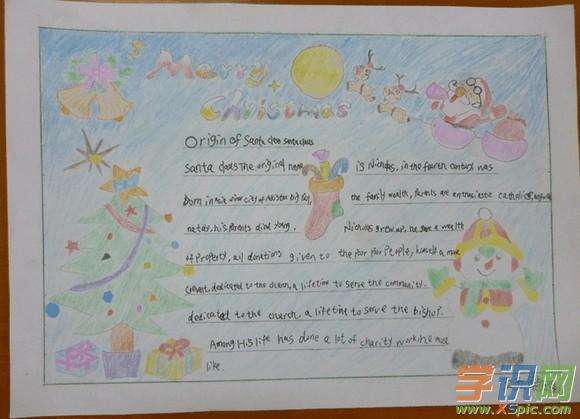 Merry
Christmas
Origin of Santa claus santa claus
Santa claus The original name is Nicholas, in the fourth century was
Born in city of big boy, the family wealth, parents are enthusiastic catholic
his parents died young. Nicholas grew up, he gave a wealth
of property, all donations given to the poor poor people, himself a
dedicated to the church, a lifetime to serve the community.
dedicated to the church, a lifetime to serve the bishop.
Among His life has done a lot of charity work he most
like.
学识网
www.XSpic.com